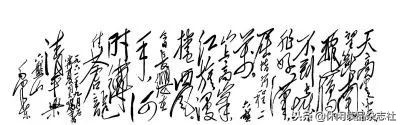 天高云淡
望断南
飞雁
不到长城
非好汉
屈指行程二
万 六盘
山上高峰
红旗漫
捲西风
今日长缨在
手 何
时缚
住苍龙
清平乐
六盘山
毛泽东
头条@休闲读品杂志社